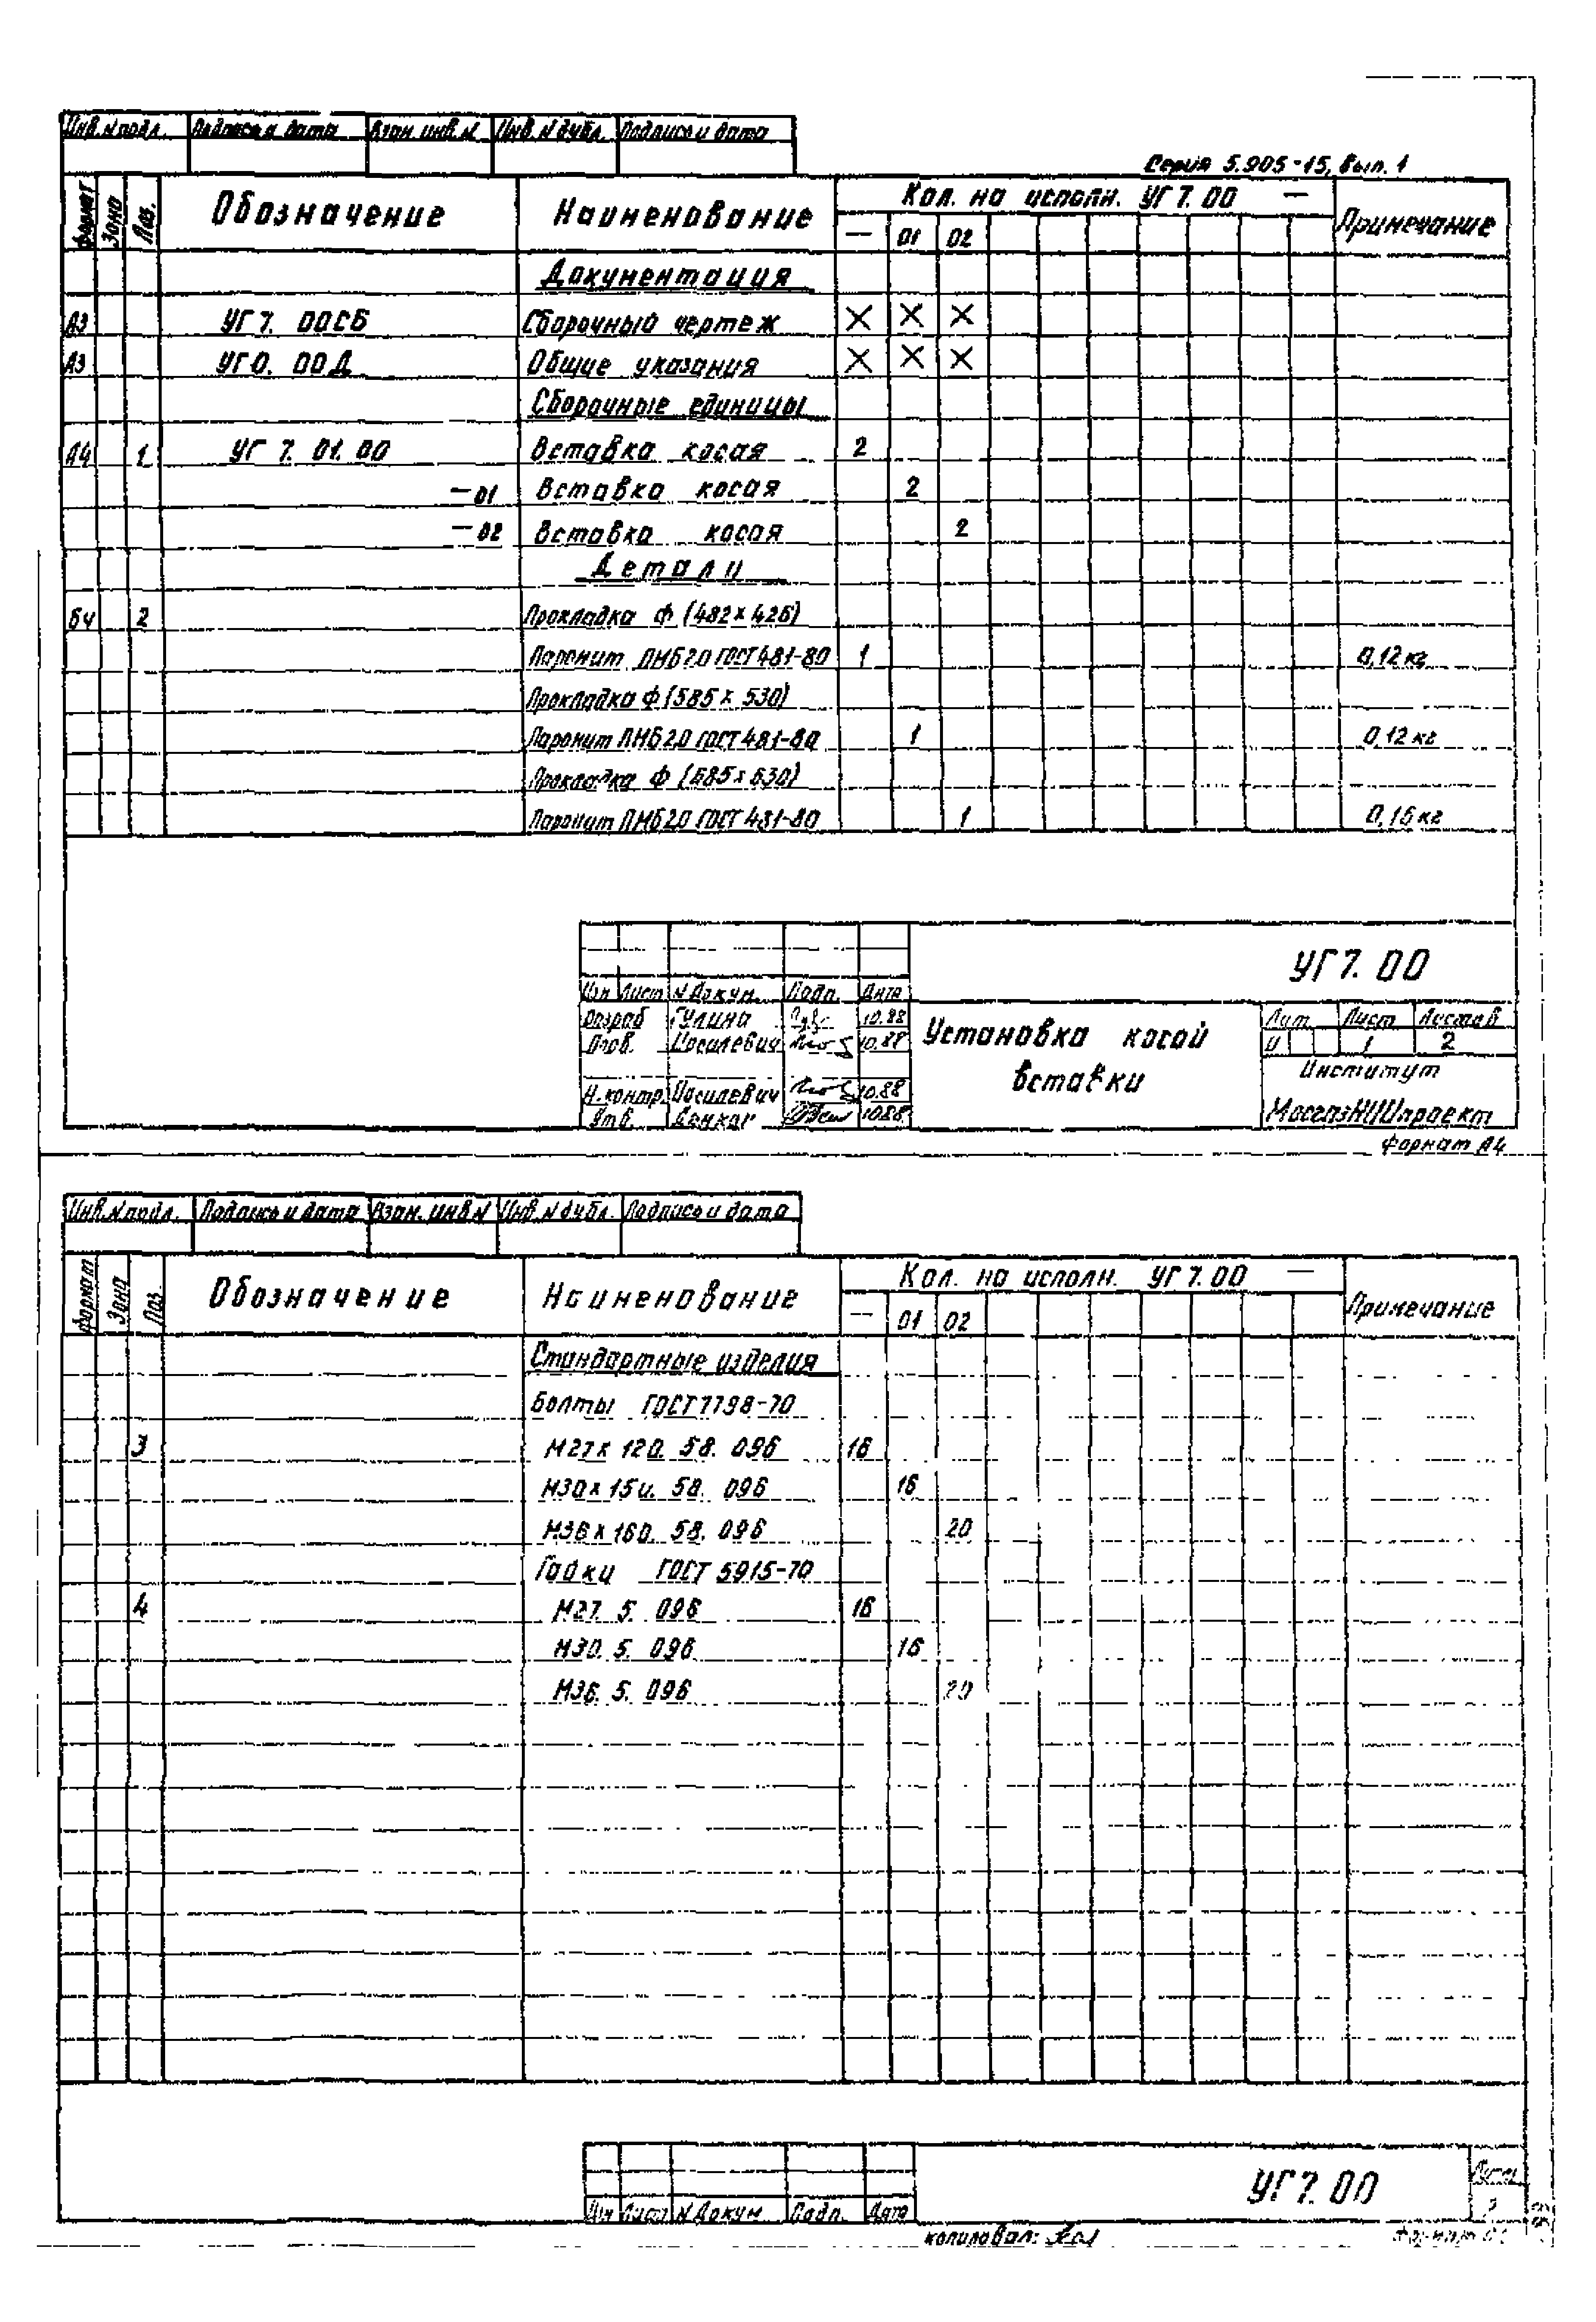 Инв. N подл. Подпись и дата Взам. инв. N Инв. N дубл. Подпись и дата
Серия 5.905-15, вып. 1
Формат Зона Поз. Обозначение Наименование Кол. на исполн. УГ 7.00 — Примечание
— 01 02
Документация
А3 УГ 7. 00СБ Сборочный чертеж X X X
А3 УГ0. 00Д Общие указания X X X
Сборочные единицы
А4 1 УГ 7. 01. 00 Вставка косая 2
— 01 Вставка косая 2
— 02 Вставка косая 2
Детали
БЧ 2 Прокладка Ф (482 x 426)
Паронит ПМБ 2.0 ГОСТ 481-80 1 0,12 кг
Прокладка Ф (585 x 530)
Паронит ПМБ 2.0 ГОСТ 481-80 1 0,12 кг
Прокладка Ф (685 x 630)
Паронит ПМБ 2.0 ГОСТ 481-80 1 0,16 кг
УГ 7. 00
Изм Лист N Докум. Подп. Дата
Разраб Гулина 10.88
Пров. Иосилевич 10.88
Н.контр. Иосилевич 10.88
Утв. 10.88
Установка косой
вставки
Лит. Лист Листов
И 1 2
Институт
МосгазНИИпроект
Формат А4
Инв. N подл. Подпись и дата Взам. инв N Инв. N дубл. Подпись и дата
Формат Зона Поз. Обозначение Наименование Кол. на исполн. УГ 7.00 — Примечание
— 01 02
Стандартные изделия
Болты ГОСТ 7798-70
3 М27 x 120. 58. 096 16
М30 x 150. 58. 096 16
М36 x 160. 58. 096 20
Гайки ГОСТ 5915-70
4 М27. 5. 096 16
М30. 5. 096 16
М36. 5. 096 20
УГ 7. 00
Лист
2
Изм Лист N Докум Подп. Дата
копировал:
Формат